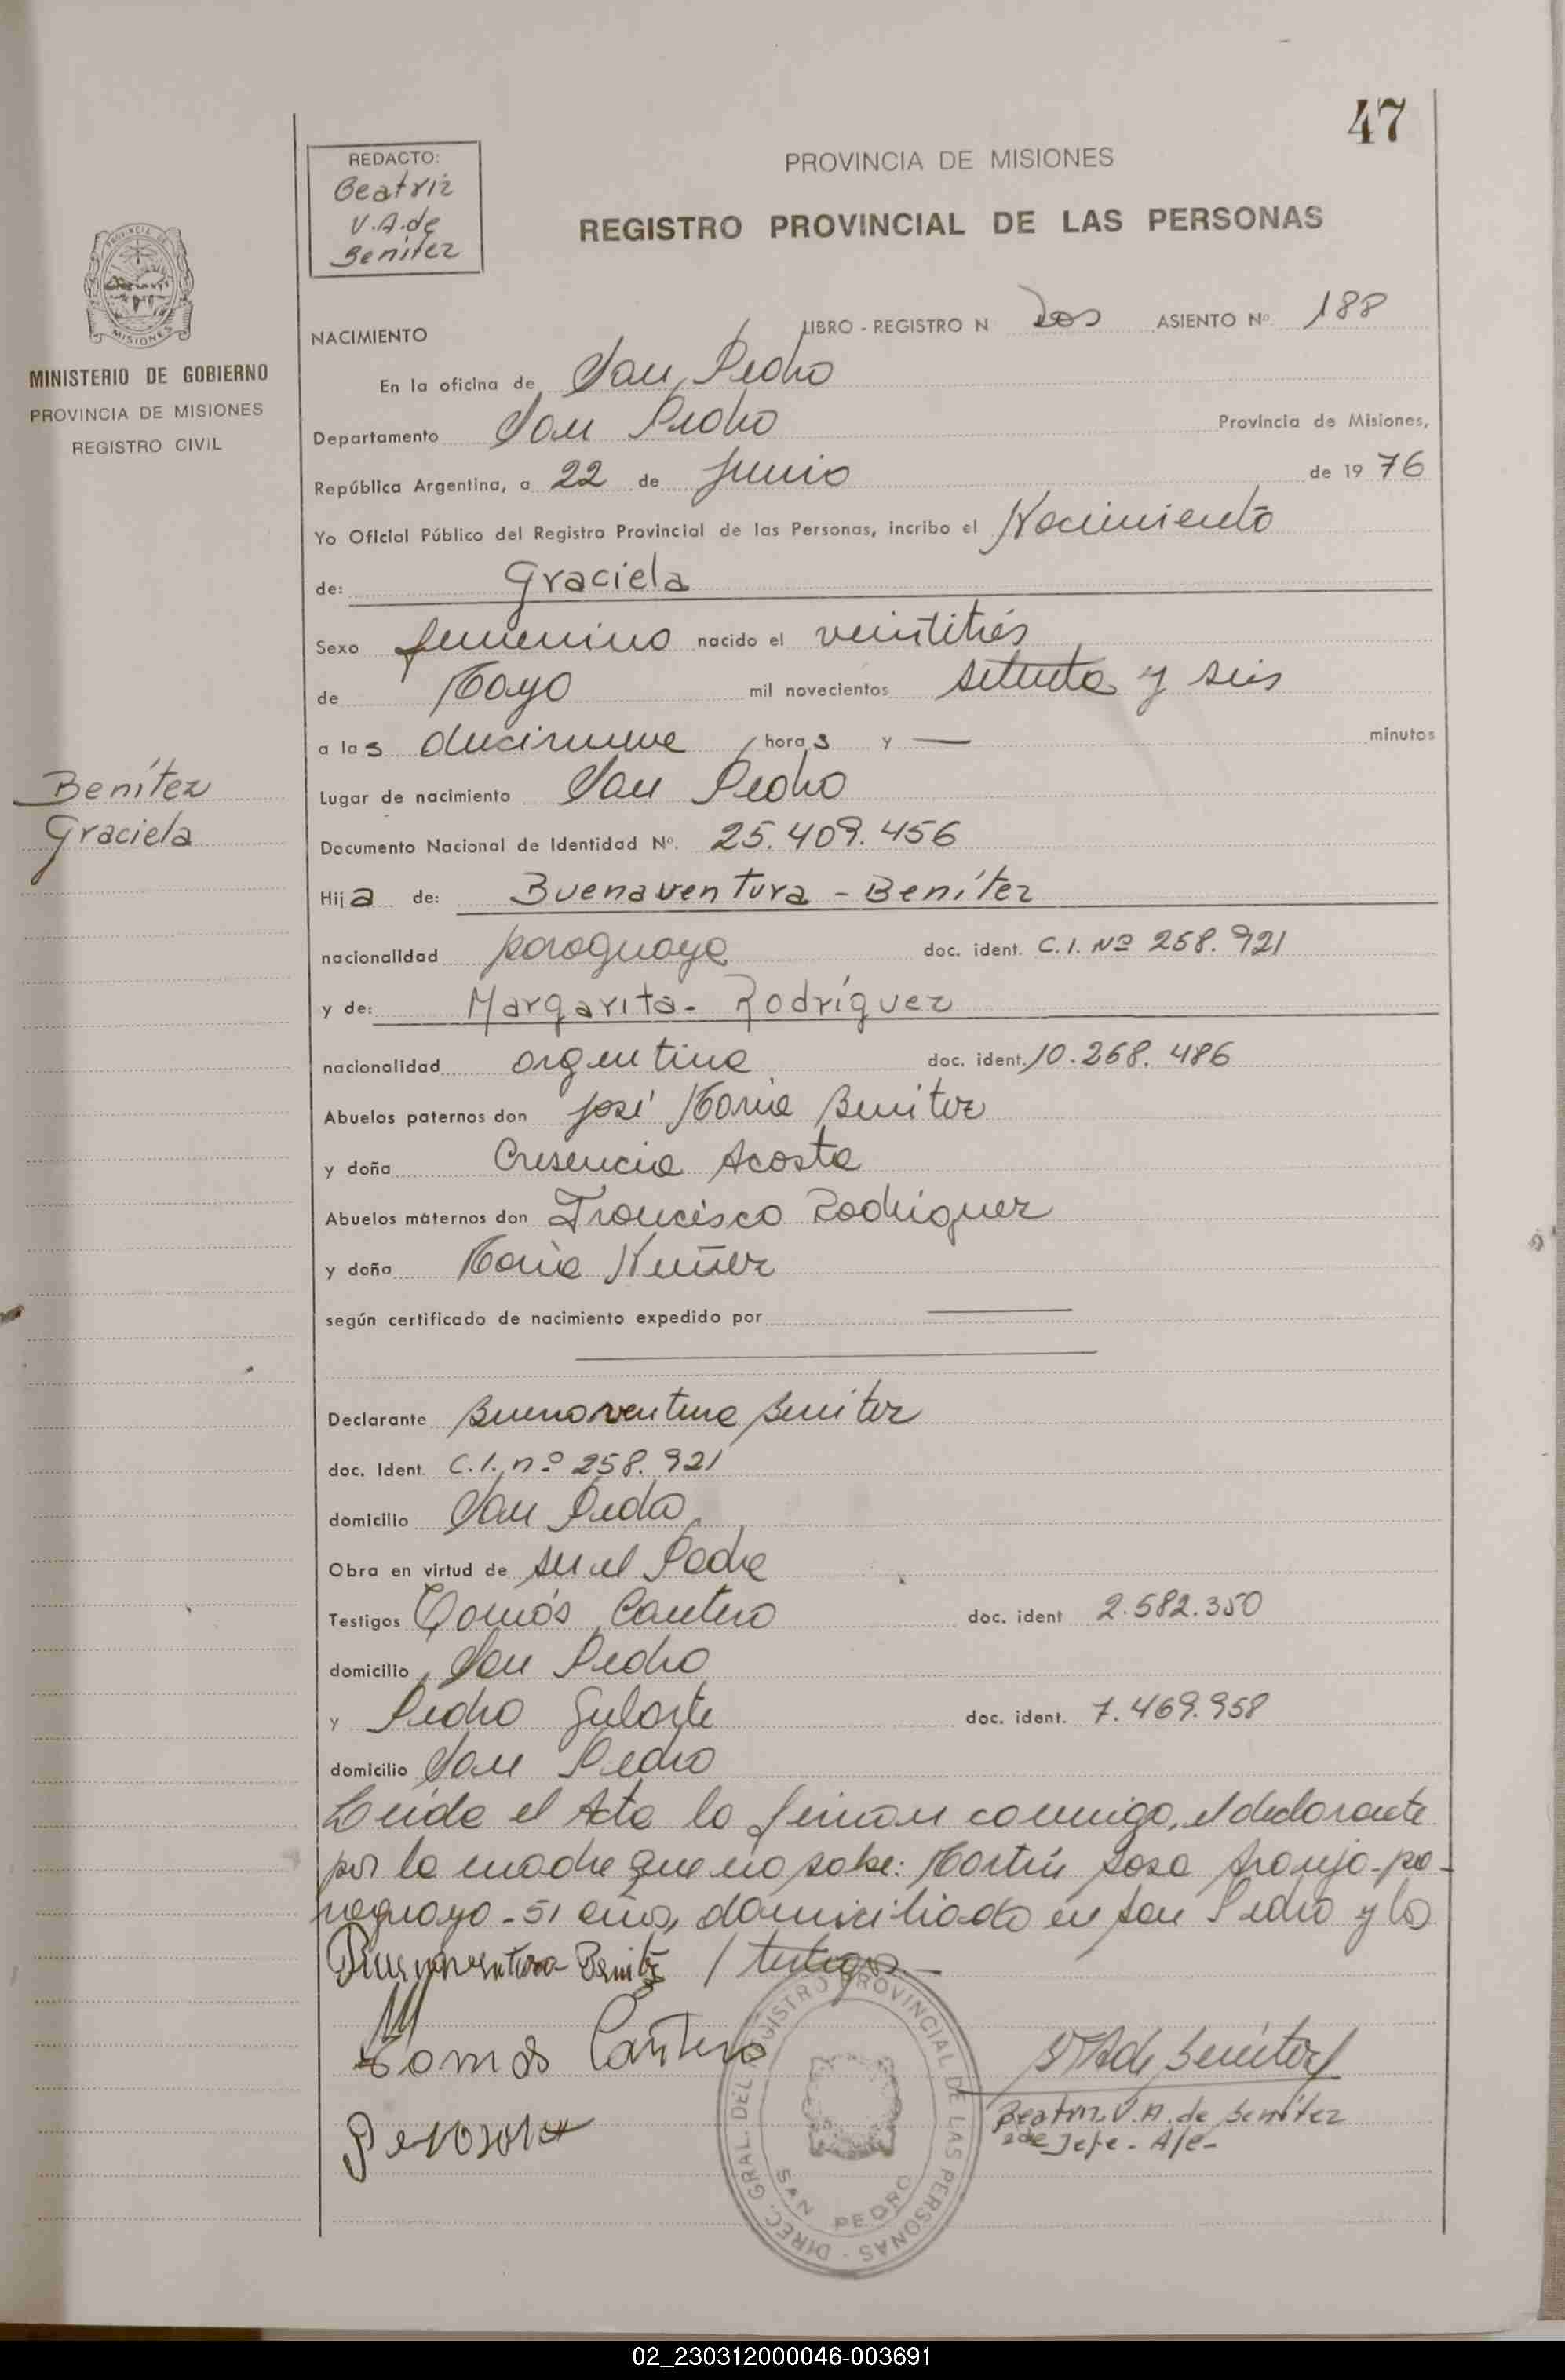 47
REDACTO:
Beatriz
V.A.de
Benítez
PROVINCIA DE MISIONES
REGISTRO PROVINCIAL DE LAS PERSONAS
PROVINCIA DE
MISIONES
MINISTERIO DE GOBIERNO
PROVINCIA DE MISIONES
REGISTRO CIVIL
NACIMIENTO LIBRO - REGISTRO N Dos ASIENTO Nº 188
En la oficina de San Pedro
Departamento San Pedro Provincia de Misiones,
República Argentina, a 22 de Junio de 19 76
Yo Oficial Público del Registro Provincial de las Personas, incribo el Nacimiento
de: Graciela
Sexo femenino nacido el veintitrés
de Mayo mil novecientos setenta y seis
a las diecinueve horas y — minutos
Benítez
Graciela
Lugar de nacimiento San Pedro
Documento Nacional de Identidad Nº. 25.409.456
Hija de: Buenaventura - Benítez
nacionalidad paraguaya doc. ident. C.I. Nº 258.921
y de: Margarita- Rodríguez
nacionalidad argentina doc. ident. 10.268.486
Abuelos paternos don José María Benitez
y doña Cresencia Acosta
Abuelos maternos don Francisco Rodriguez
y doña María Nuñez
según certificado de nacimiento expedido por
Declarante Buenaventura Benitez
doc. Ident. C.I. nº 258.921
domicilio San Pedro
Obra en virtud de ser el Padre
Testigos Tomás Cantero doc. ident 2.582.350
domicilio San Pedro
y Pedro Gularte doc. ident. 7.469.958
domicilio San Pedro
Leída el Acta la firman conmigo, el declarante
por la madre que no sabe: Martín Sosa Araujo-pa-
raguayo - 51 años, domiciliado en San Pedro y los
Buenaventura Benitez / testigos.—
Tomas Cantero
V A de Benítez
Beatriz V.A. de Benítez
2do Jefe - A/c-
DIREC. GRAL. DEL REGISTRO PROVINCIAL DE LAS PERSONAS -
SAN PEDRO
02_230312000046-003691